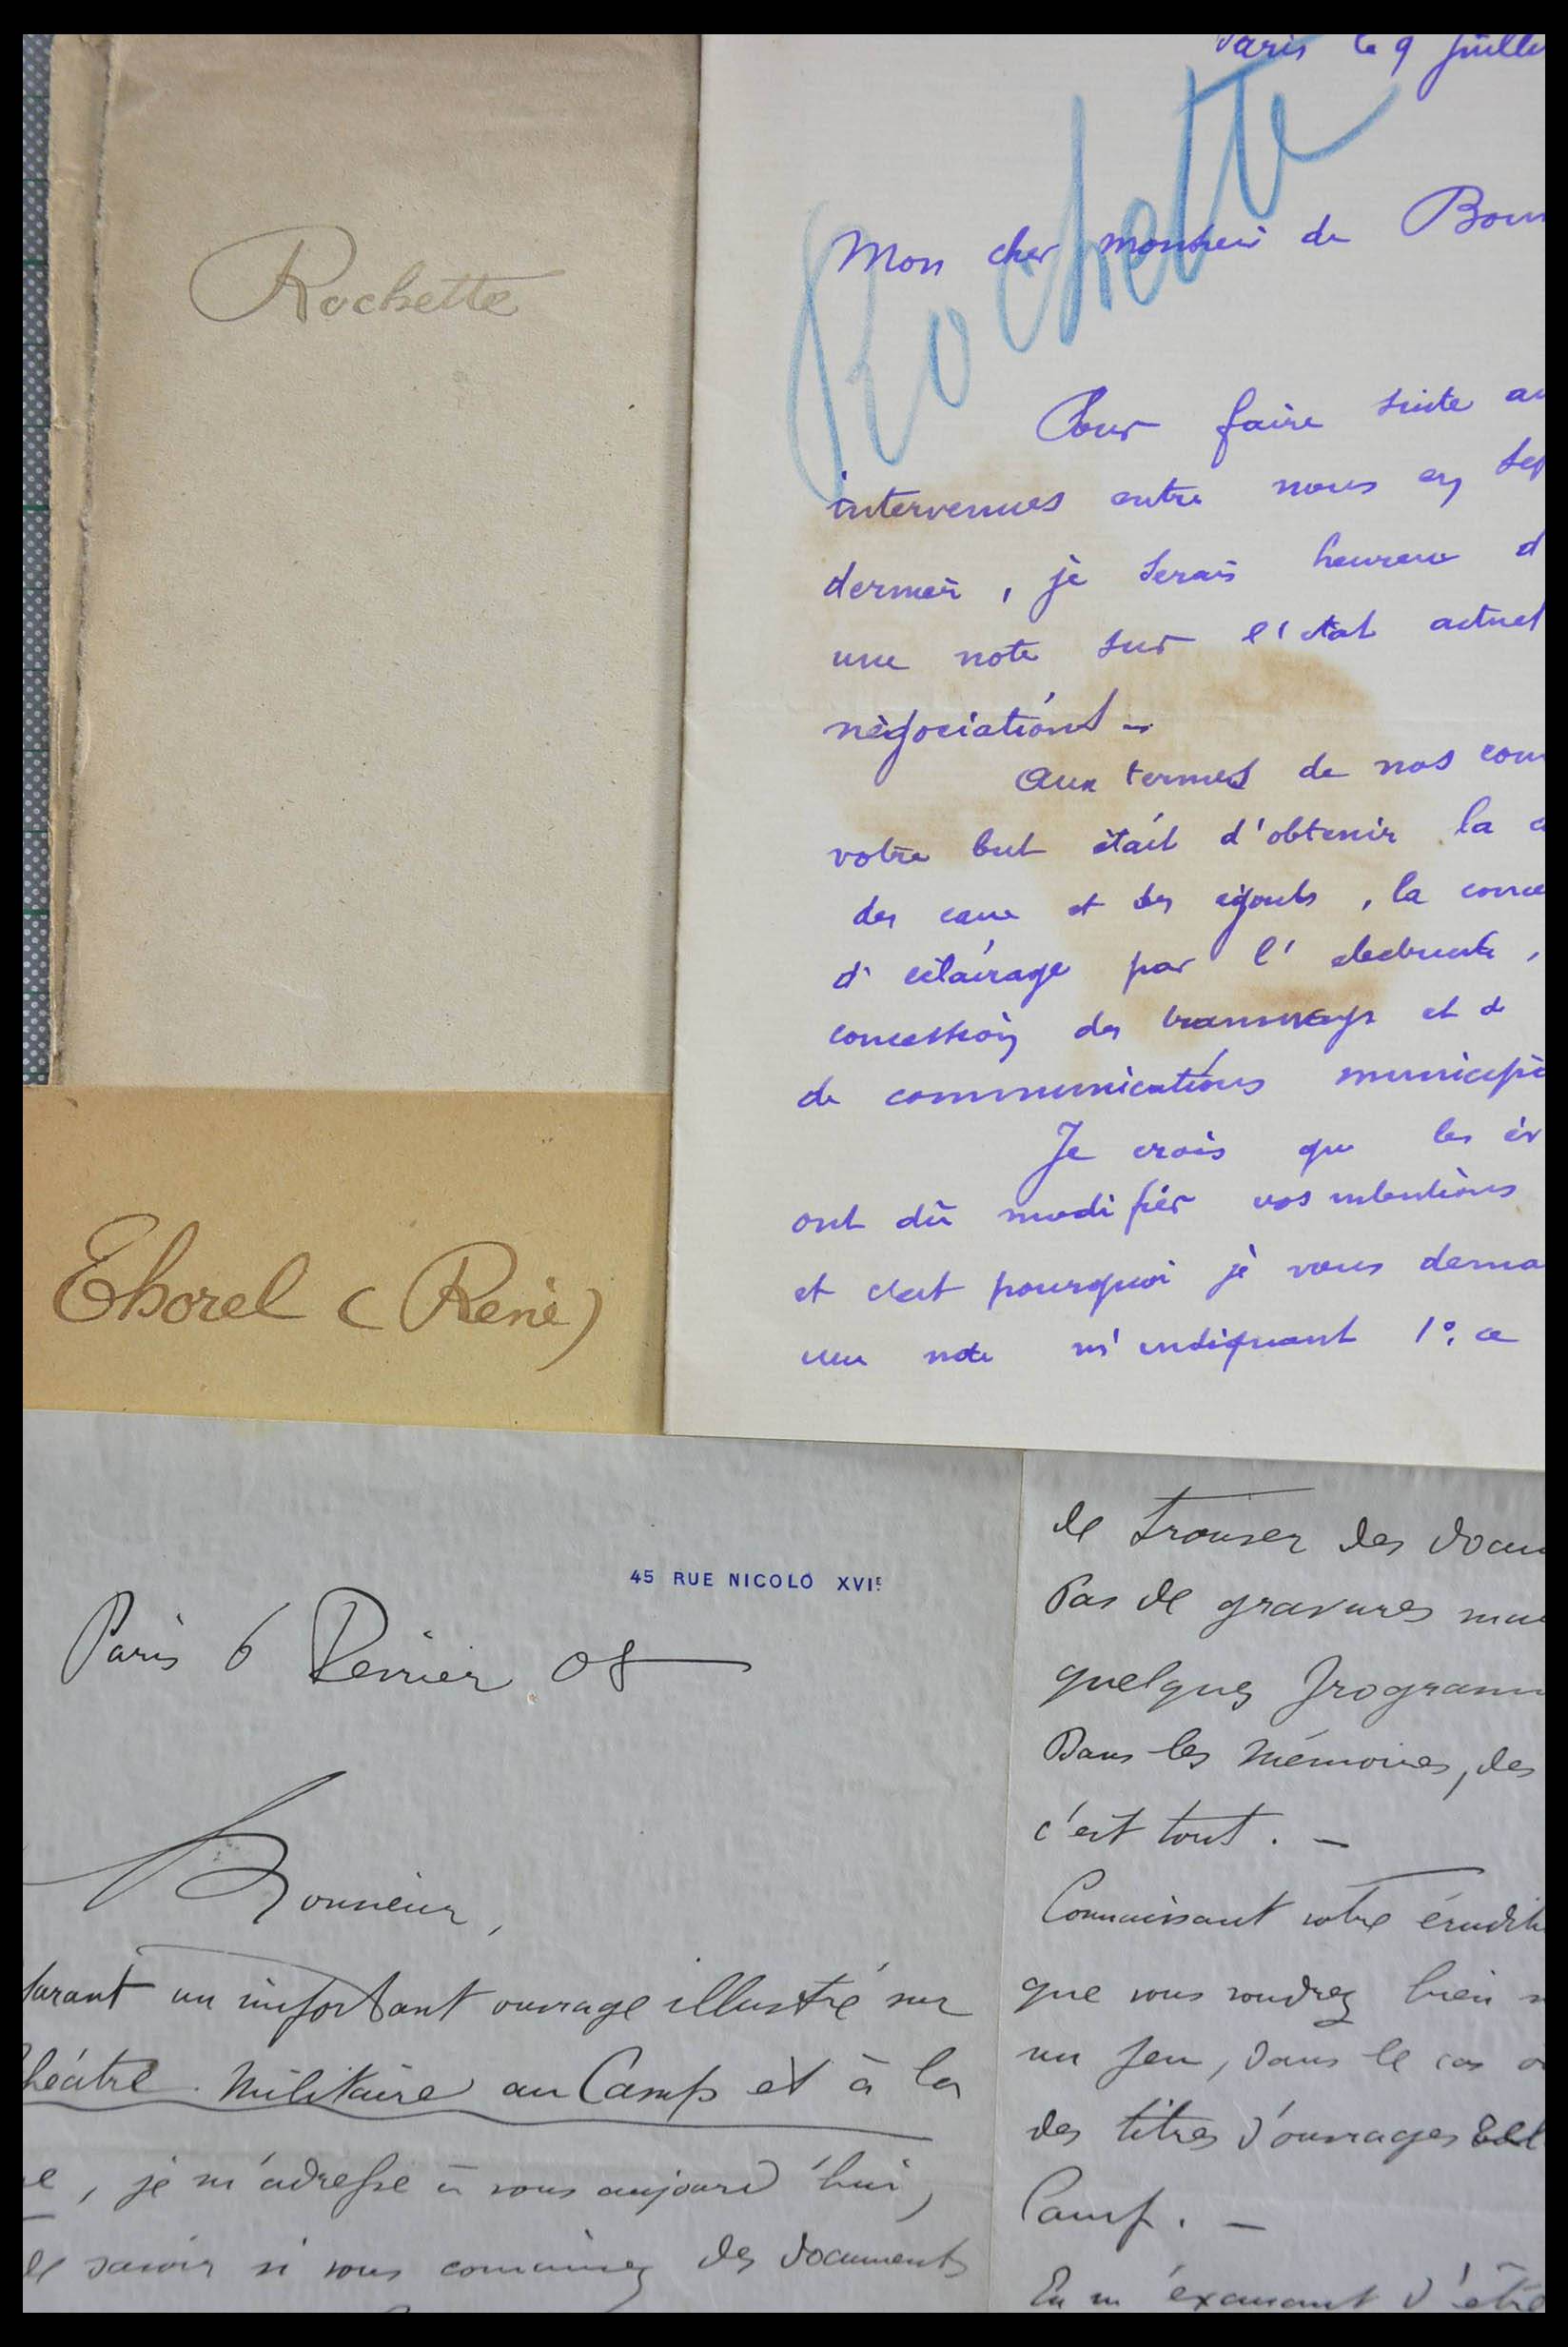 Rochette
Paris le 9 Juille
Rochette
Mon cher monsieur de
Pour faire suite
intervenues entre nous en
dernier, je serais heureux d
une note sur l'état actuel
négociations -
Aux termes de nos
votre but était d'obtenir la
des eaux et des égouts, la
d'éclairage par l'électricité,
concession des tramways et d
de communications
Je crois que les
ont dû modifier vos intentions
et c'est pourquoi je vous
une note m'indiquant 1º: ce
Thorel (René)
45 RUE NICOLO XVIE
Paris 6 Février 08
Monsieur,
un important ouvrage illustré sur
Militaire au Camp et à la
, je m'adresse à vous aujourd'hui,
de savoir si vous connaissez des documents
de trouver des
Pas de gravures
quelques
Dans les Mémoires, des
c'est tout. -
Connaissant votre
que vous voudrez bien
un peu, dans le cas
des titres d'ouvrages
Camp. -
En m'excusant d'